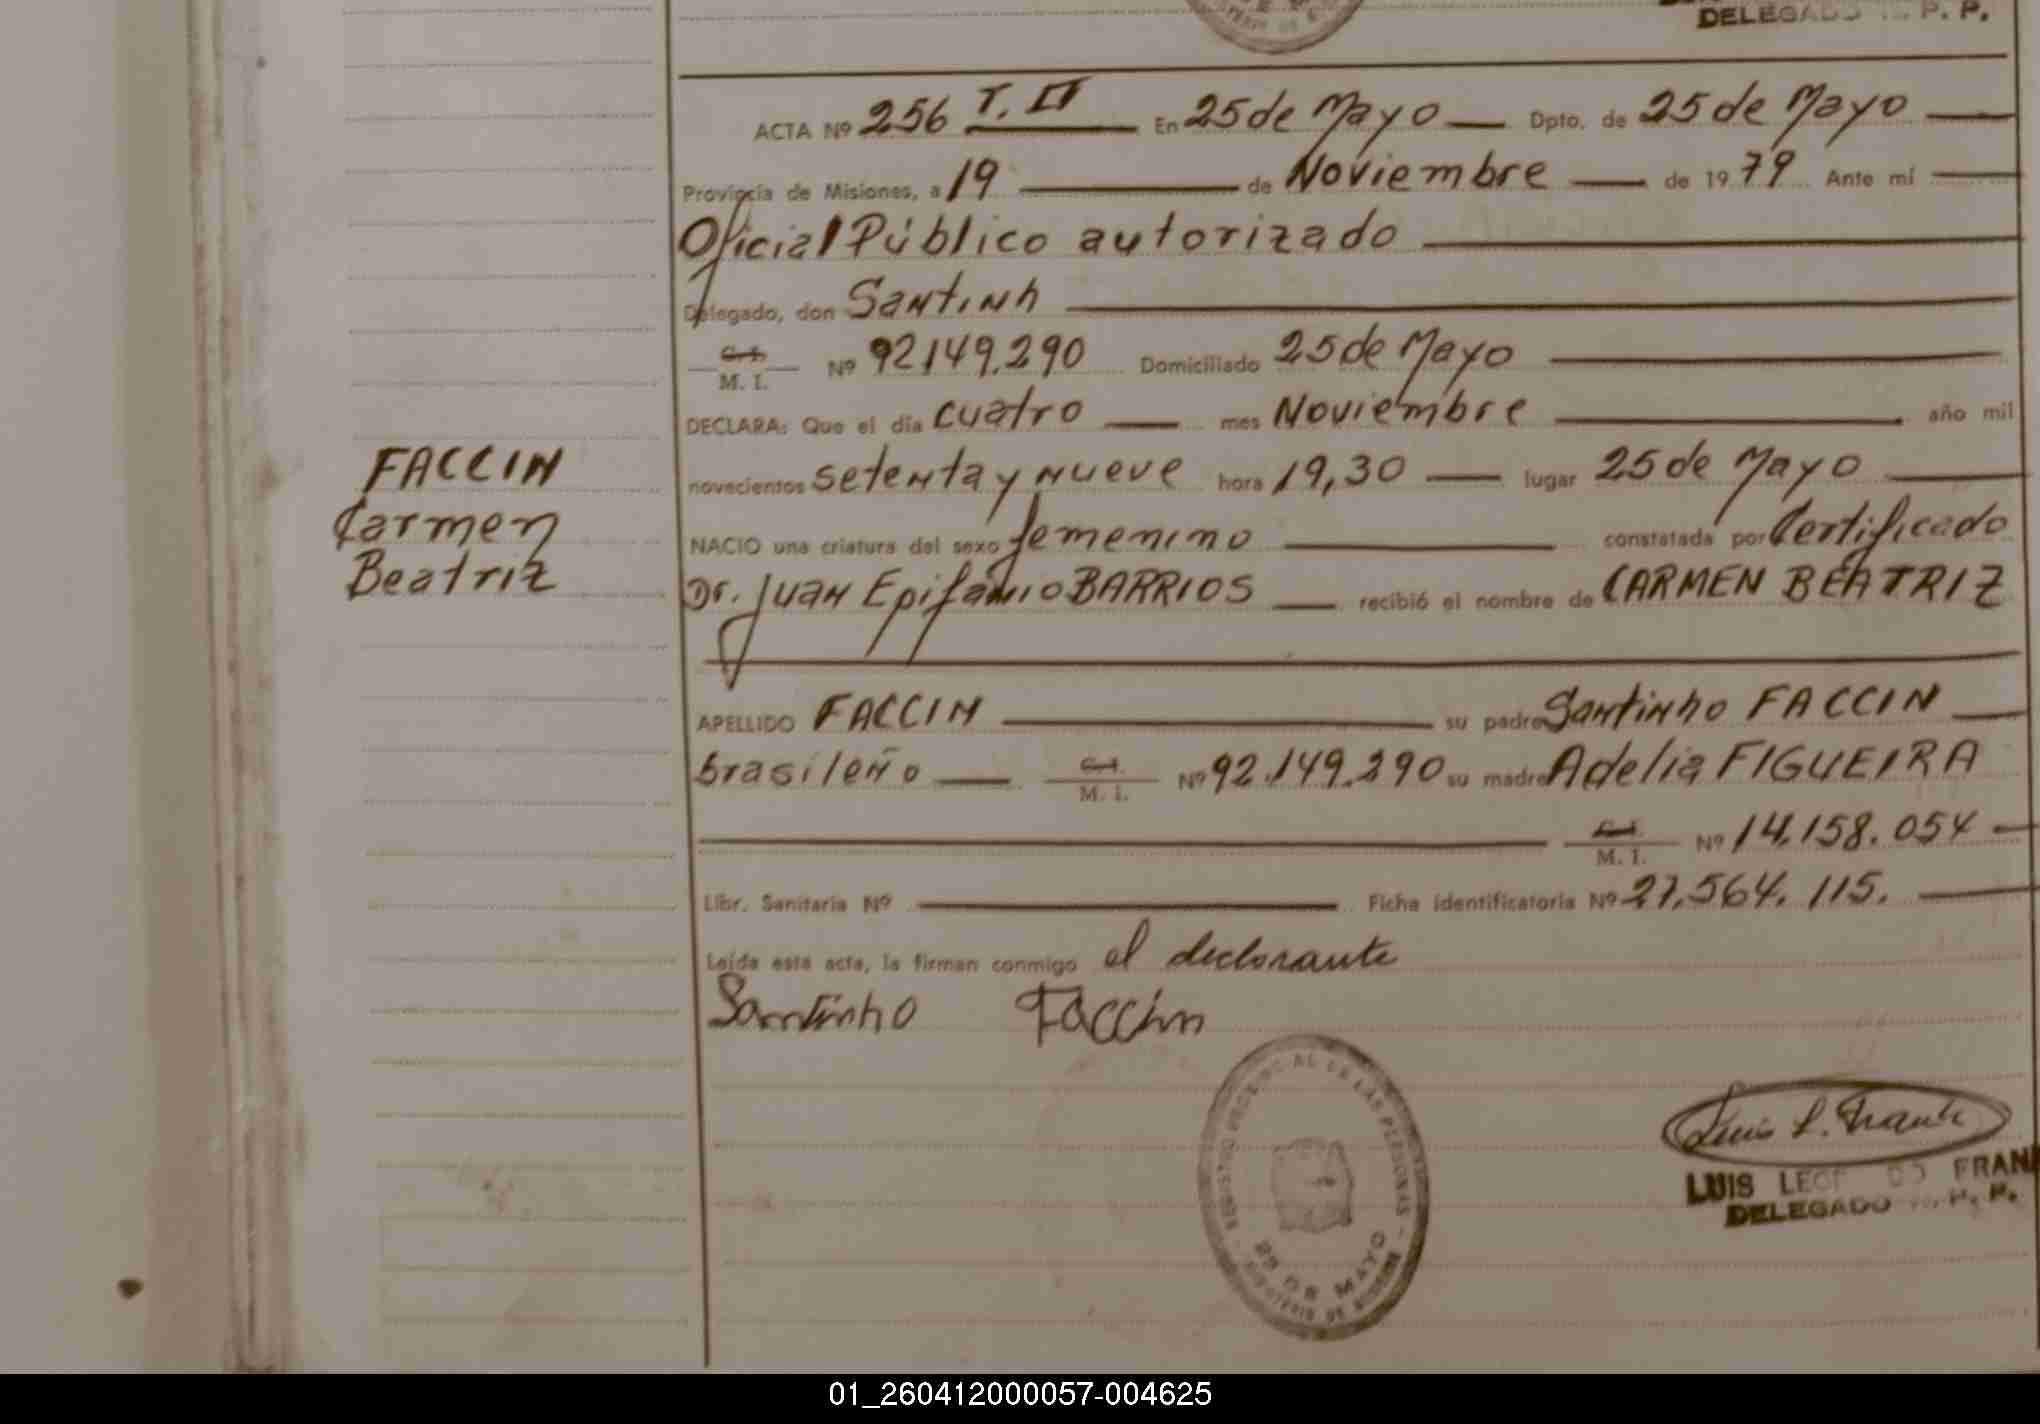 DELEGADO P. P.
ACTA Nº 256 T. II En 25 de Mayo Dpto. de 25 de Mayo
Provincia de Misiones, a 19 de Noviembre de 1979 Ante mí
Oficial Público autorizado
Delegado, don Santinh
C. I. M. I. Nº 92149.290 Domiciliado 25 de Mayo
DECLARA: Que el día cuatro mes Noviembre año mil
novecientos setenta y nueve hora 19,30 lugar 25 de Mayo
NACIO una criatura del sexo femenino constatada por Certificado
Dr. Juan Epifanio BARRIOS recibió el nombre de CARMEN BEATRIZ
APELLIDO FACCIN su padre Santinho FACCIN
brasileño C. I. M. I. Nº 92.149.290 su madre Adelia FIGUEIRA
C. I. M. I. Nº 14.158.054
Libr. Sanitaria Nº Ficha identificatoria Nº 27.564.115.
Leída esta acta, la firman conmigo el declarante
Santinho Faccin
FACCIN
Carmen
Beatriz
REGISTRO PROVINCIAL DE LAS PERSONAS
25 DE MAYO
Luis L. Frank
LUIS FRAN
DELEGADO P. P.
01_260412000057-004625